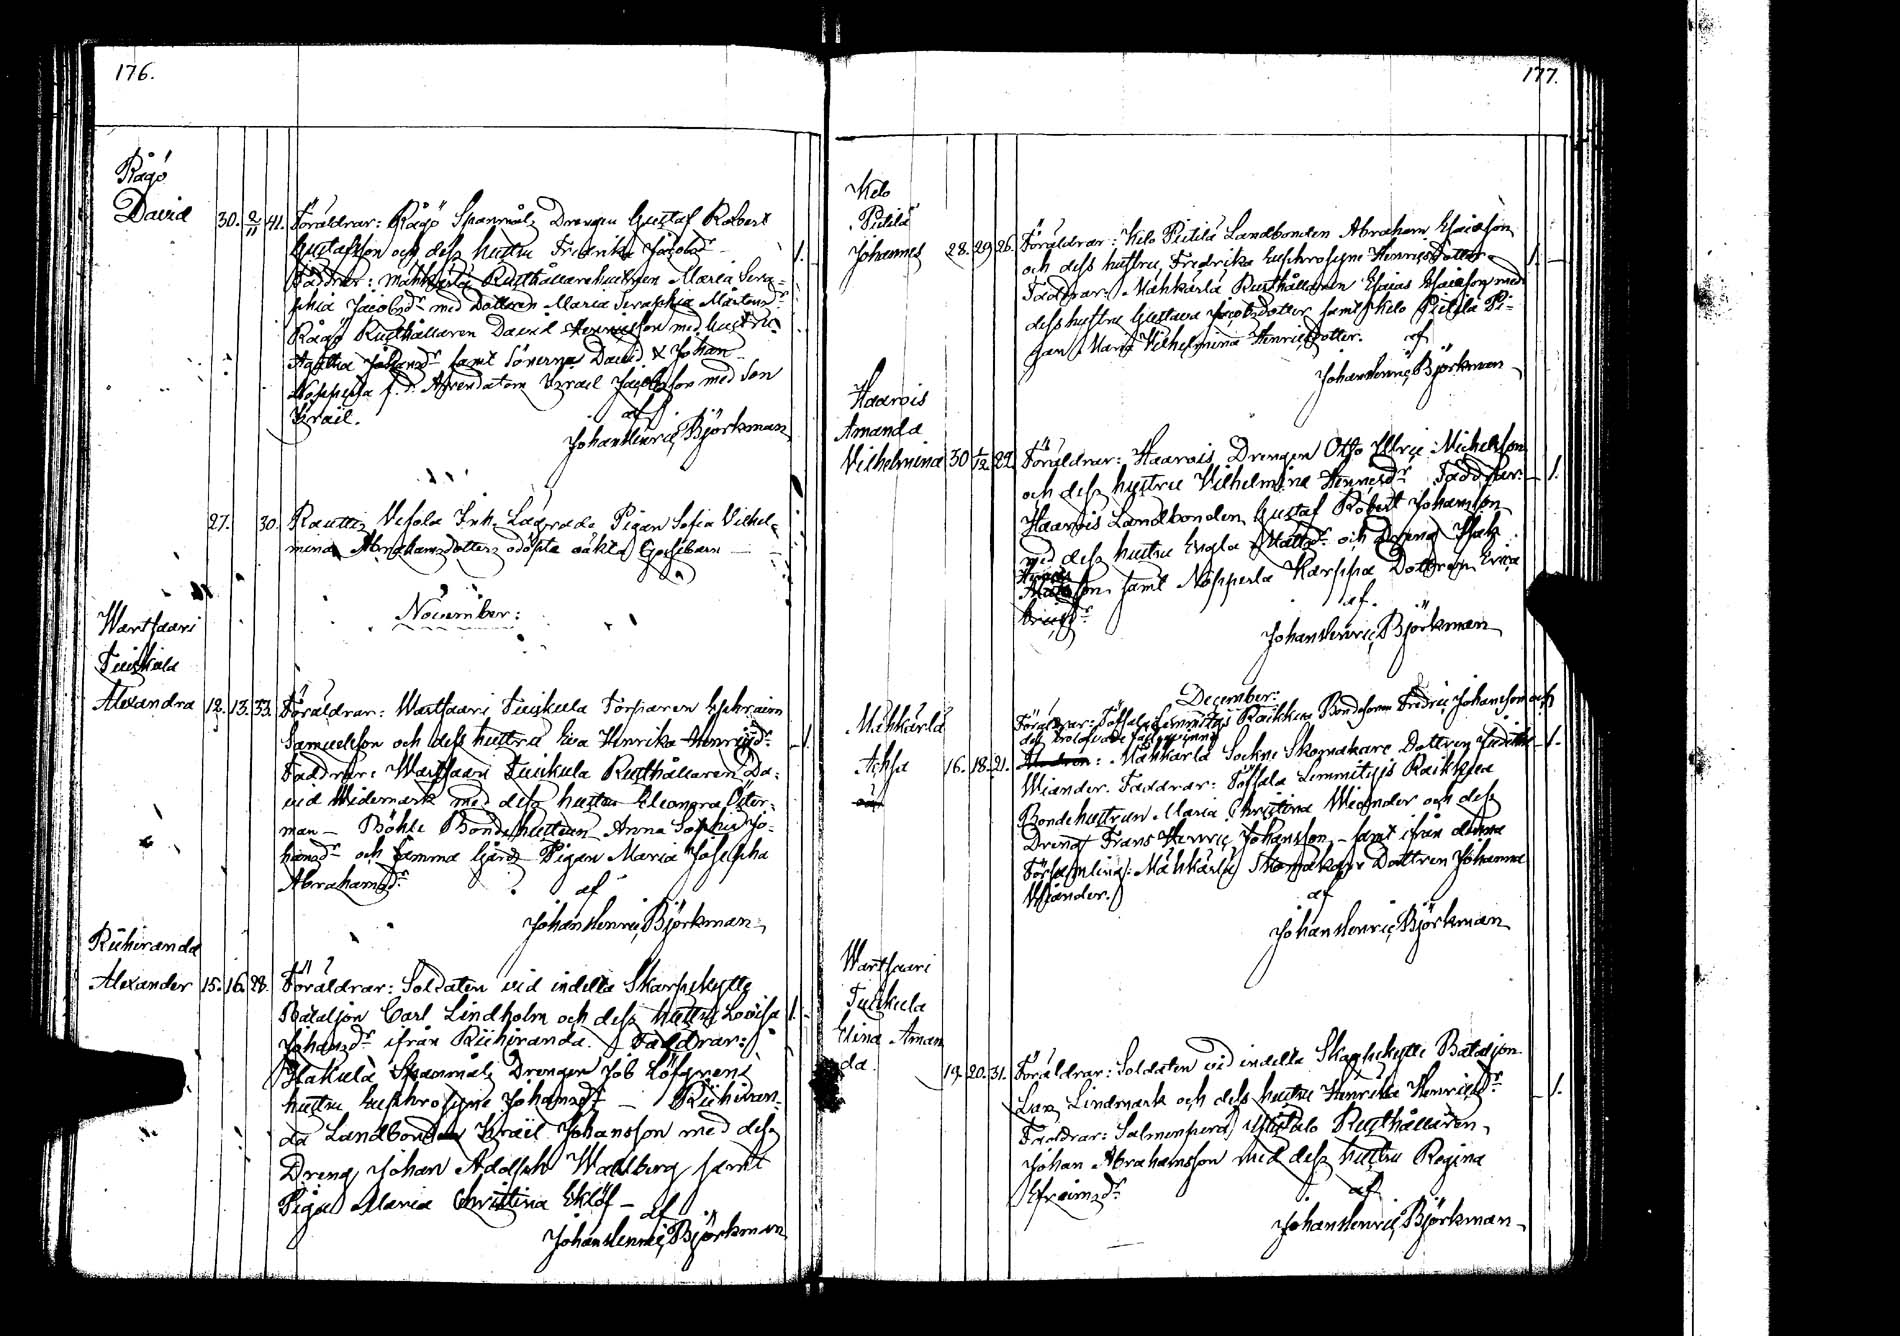 176.
Rågö
David 30. 2/11 41. Föräldrar: Rågö Spanmåls Drengen Gustaf Robert
Gustafsson och dess hustru Fredrika Jacobsdr
Faddrar: Mahkarla Rusthållarehustrun Maria Sera=
phia Jacobsdr med Dottren Maria Seraphia Mårtensdr
Rågö Rusthållaren David Henricsson med hustru
Agatha Johansdr samt Sönerna David & Johan
Nopperla f. d. Arrendatorn Israil Jacobsson med Son
Israil. 1.
af
Johan Henric Björkman
27. 30. Rautio Inh. Lägrade Pigan Sofia Vilhel=
mina Abrahamsdotters odöpta oäkta Gossebarn —
November:
Wartsaari
Tuiskula
Alexandra 12. 13. 33. Föräldrar: Wartsaari Tuiskula Torparen Ephraim
Samuelsson och dess hustru Eva Henrika Henricsdr 1.
Faddrar: Wartsaari Tuiskula Rusthållaren Da=
vid Widemark med dess hustru Eleonora Öster=
man — Böhle Bondehustrun Anna Sophia Jo=
hansdr och samma Gårds Pigan Maria Josepha
Abrahamsdr
af
Johan Henric Björkman
Riihiranda
Alexander 15. 16. 28. Föräldrar: Soldaten vid indelta Skarpskytte
Bataljon Carl Lindholm och dess hustru Lovisa 1.
Johansdr ifrån Riihiranda. Faddrar:
Spanmåls Drengen Job Löfgrens
hustru Euphrosyne Johansdr — Riihiran=
da Landbonden Israil Johansson med dess
Dreng Johan Adolph Wahlberg samt
Pigan Maria Christina Eklöf —
af
Johan Henric Björkman
177.
Kelo
Pietilä
Johannes 28. 29. 26. Föräldrar: Kelo Pietilä Landbonden Abraham Esaiasson
och dess hustru Fredrika Euphrosyne Henricsdotter 1.
Faddrar: Mahkarla Rusthållaren Esaias Esaiasson med
dess hustru Gustava Jacobsdotter samt Kelo Pietilä Pi=
gan Maria Vilhelmina Henricsdotter.
af
Johan Henric Björkman
Haarois
Amanda
Vilhelmina 30 1/12 29. Föräldrar: Haarois Drengen Otto Ulric Michelsson
och dess hustru Vilhelmina Henricsdr Faddrar: 1.
Haarois Landbonden Gustaf Robert Johansson
med dess hustru Engla Mattsdr och Dreng Isak
samt Nopperla Karppa Dottren Erica
af.
Johan Henric Björkman
December:
Mahkarla
Achsa 16. 18. 21. Föräldrar: Töfsala Lemmityis Raikkua Bondesonen Fredric Johansson och
dess trolofvade
Mahkarla Sockne Skomakare Dottren Judith 1.
Wiander. Faddrar: Töfsala Lemmityis Raikkua
Bondehustrun Maria Christina Wiander och dess
Dreng Frans Henric Johansson — samt ifrån denna
Församling: Mahkarla Skomakare Dottren Johanna
Wiander.
af
Johan Henric Björkman
Wartsaari
Tuiskula
Elina Aman
da. 19. 20. 31. Föräldrar: Soldaten vid indelta Skarpskytte Bataljon
Lars Lindmark och dess hustru Henrika Henricsdr 1.
Faddrar: Salmenperä Rusthållaren
Johan Abrahamsson med dess hustru Regina
Efraimsdr
af
Johan Henric Björkman